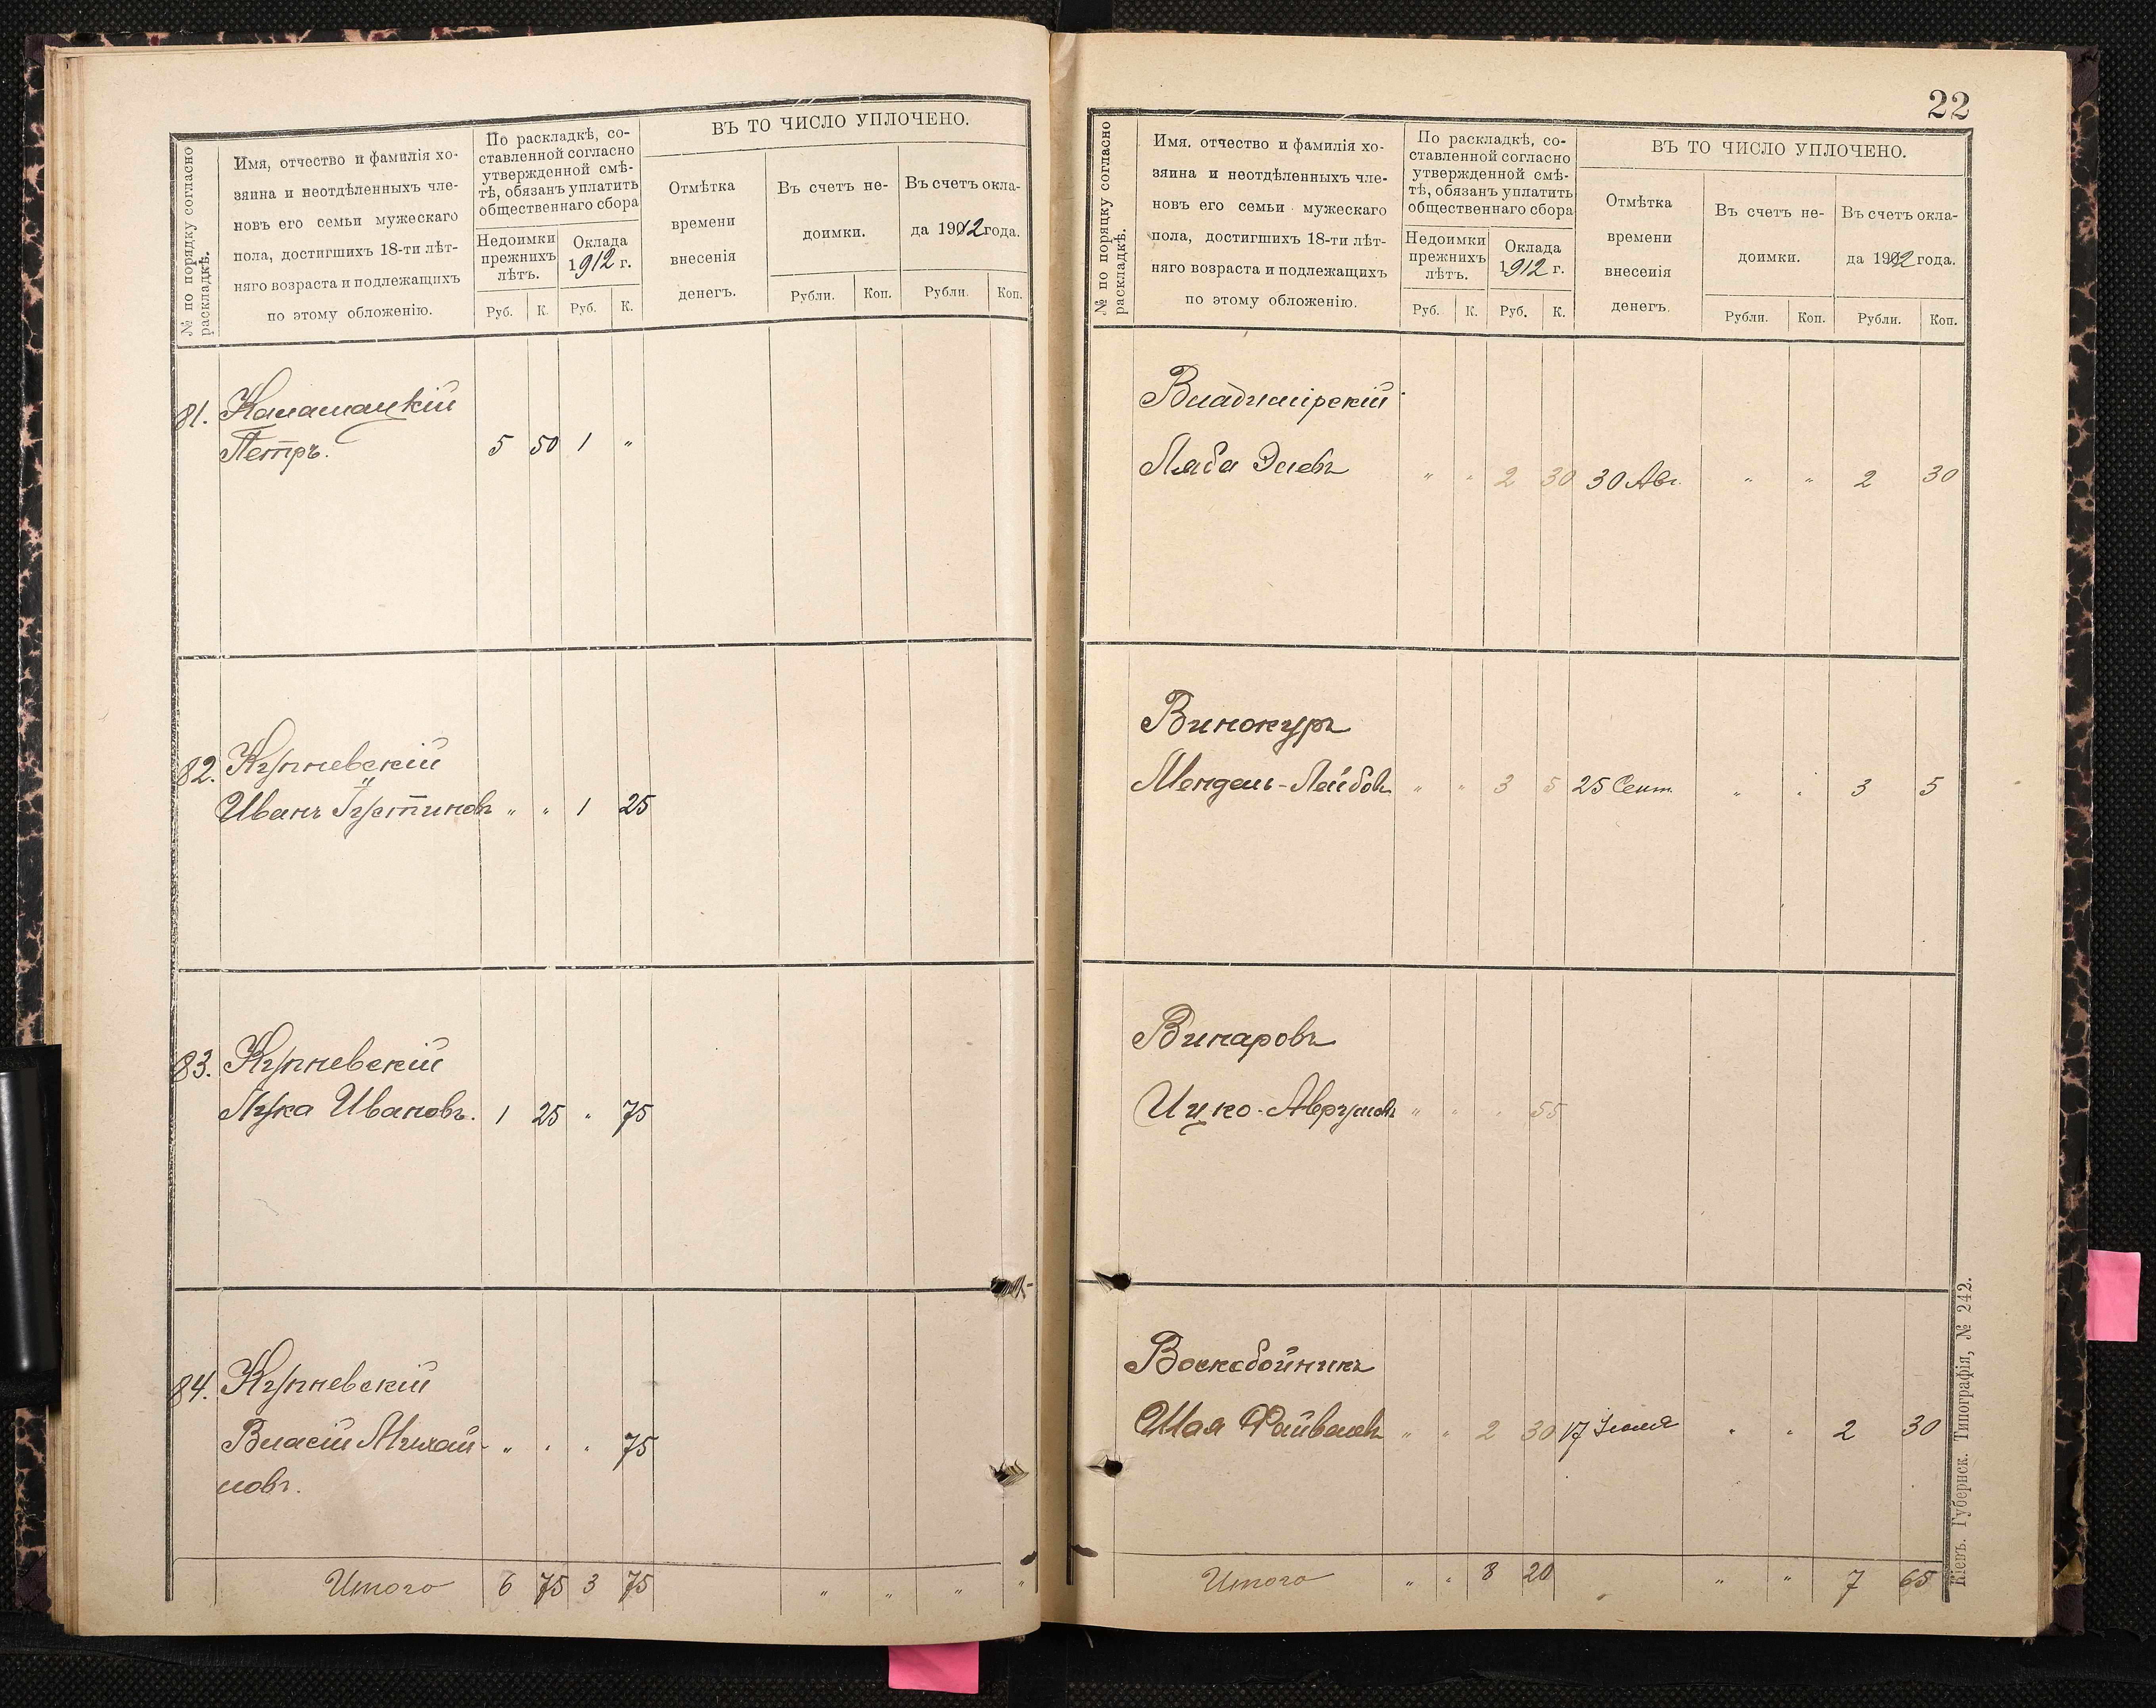 № по порядку согласно
раскладкѣ.
Имя, отчество и фамилія хо-
зяина и неотдѣленныхъ чле-
новъ его семьи мужескаго
пола, достигшихъ 18-ти лѣт-
няго возраста и подлежащихъ
по этому обложенію.
По раскладкѣ, со-
ставленной согласно
утвержденной смѣ-
тѣ, обязанъ уплатить
общественнаго сбора
Недоимки
прежнихъ
лѣтъ.
Оклада
1912 г.
Руб. К. Руб. К.
ВЪ ТО ЧИСЛО УПЛОЧЕНО.
Отмѣтка
времени
внесенія
денегъ.
Въ счетъ не-
доимки.
Въ счетъ окла-
да 1912 года.
Рубли. Коп. Рубли. Коп.
81.
Петръ. 5 50 1 "
82. Купневскій
Иванъ Іустиновъ " " 1 25
83. Купневскій
Лука Ивановъ. 1 25 " 75
84. Купневскій
Власій Михай- " " " 75
ловъ.
Итого 6 75 3 75 " " " "
22
№ по порядку согласно
раскладкѣ.
Имя, отчество и фамилія хо-
зяина и неотдѣленныхъ чле-
новъ его семьи мужескаго
пола, достигшихъ 18-ти лѣт-
няго возраста и подлежащихъ
по этому обложенію.
По раскладкѣ, со-
ставленной согласно
утвержденной смѣ-
тѣ, обязанъ уплатить
общественнаго сбора
Недоимки
прежнихъ
лѣтъ.
Оклада
1912 г.
Руб. К. Руб. К.
ВЪ ТО ЧИСЛО УПЛОЧЕНО.
Отмѣтка
времени
внесенія
денегъ.
Въ счетъ не-
доимки.
Въ счетъ окла-
да 1912 года.
Рубли. Коп. Рубли. Коп.
Владимірскій
" " 2 30 30 Авг. " " 2 30
Винокуръ
Мендель-Лейбовъ " " 3 5 25 Сент. " " 3 5
Винаровъ
Ицко-Аврумовъ " " " 55
Воскобойникъ
Шая Файвелевъ " " 2 30 17 Іюля " " 2 30
Итого " " 8 20 " " 7 65
Кіевъ. Губернск. Типографія, № 242.